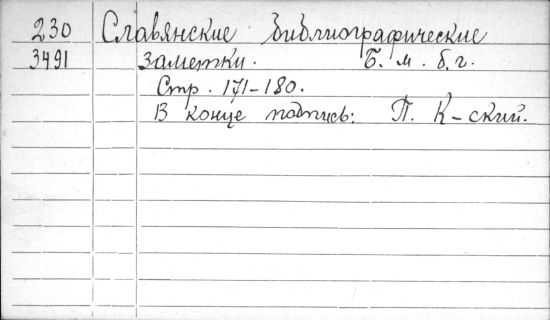 230 Славянские библиографические
3491 заметки. Б. м. б. г.
Стр. 171-180.
В конце подпись: П. К-ский.